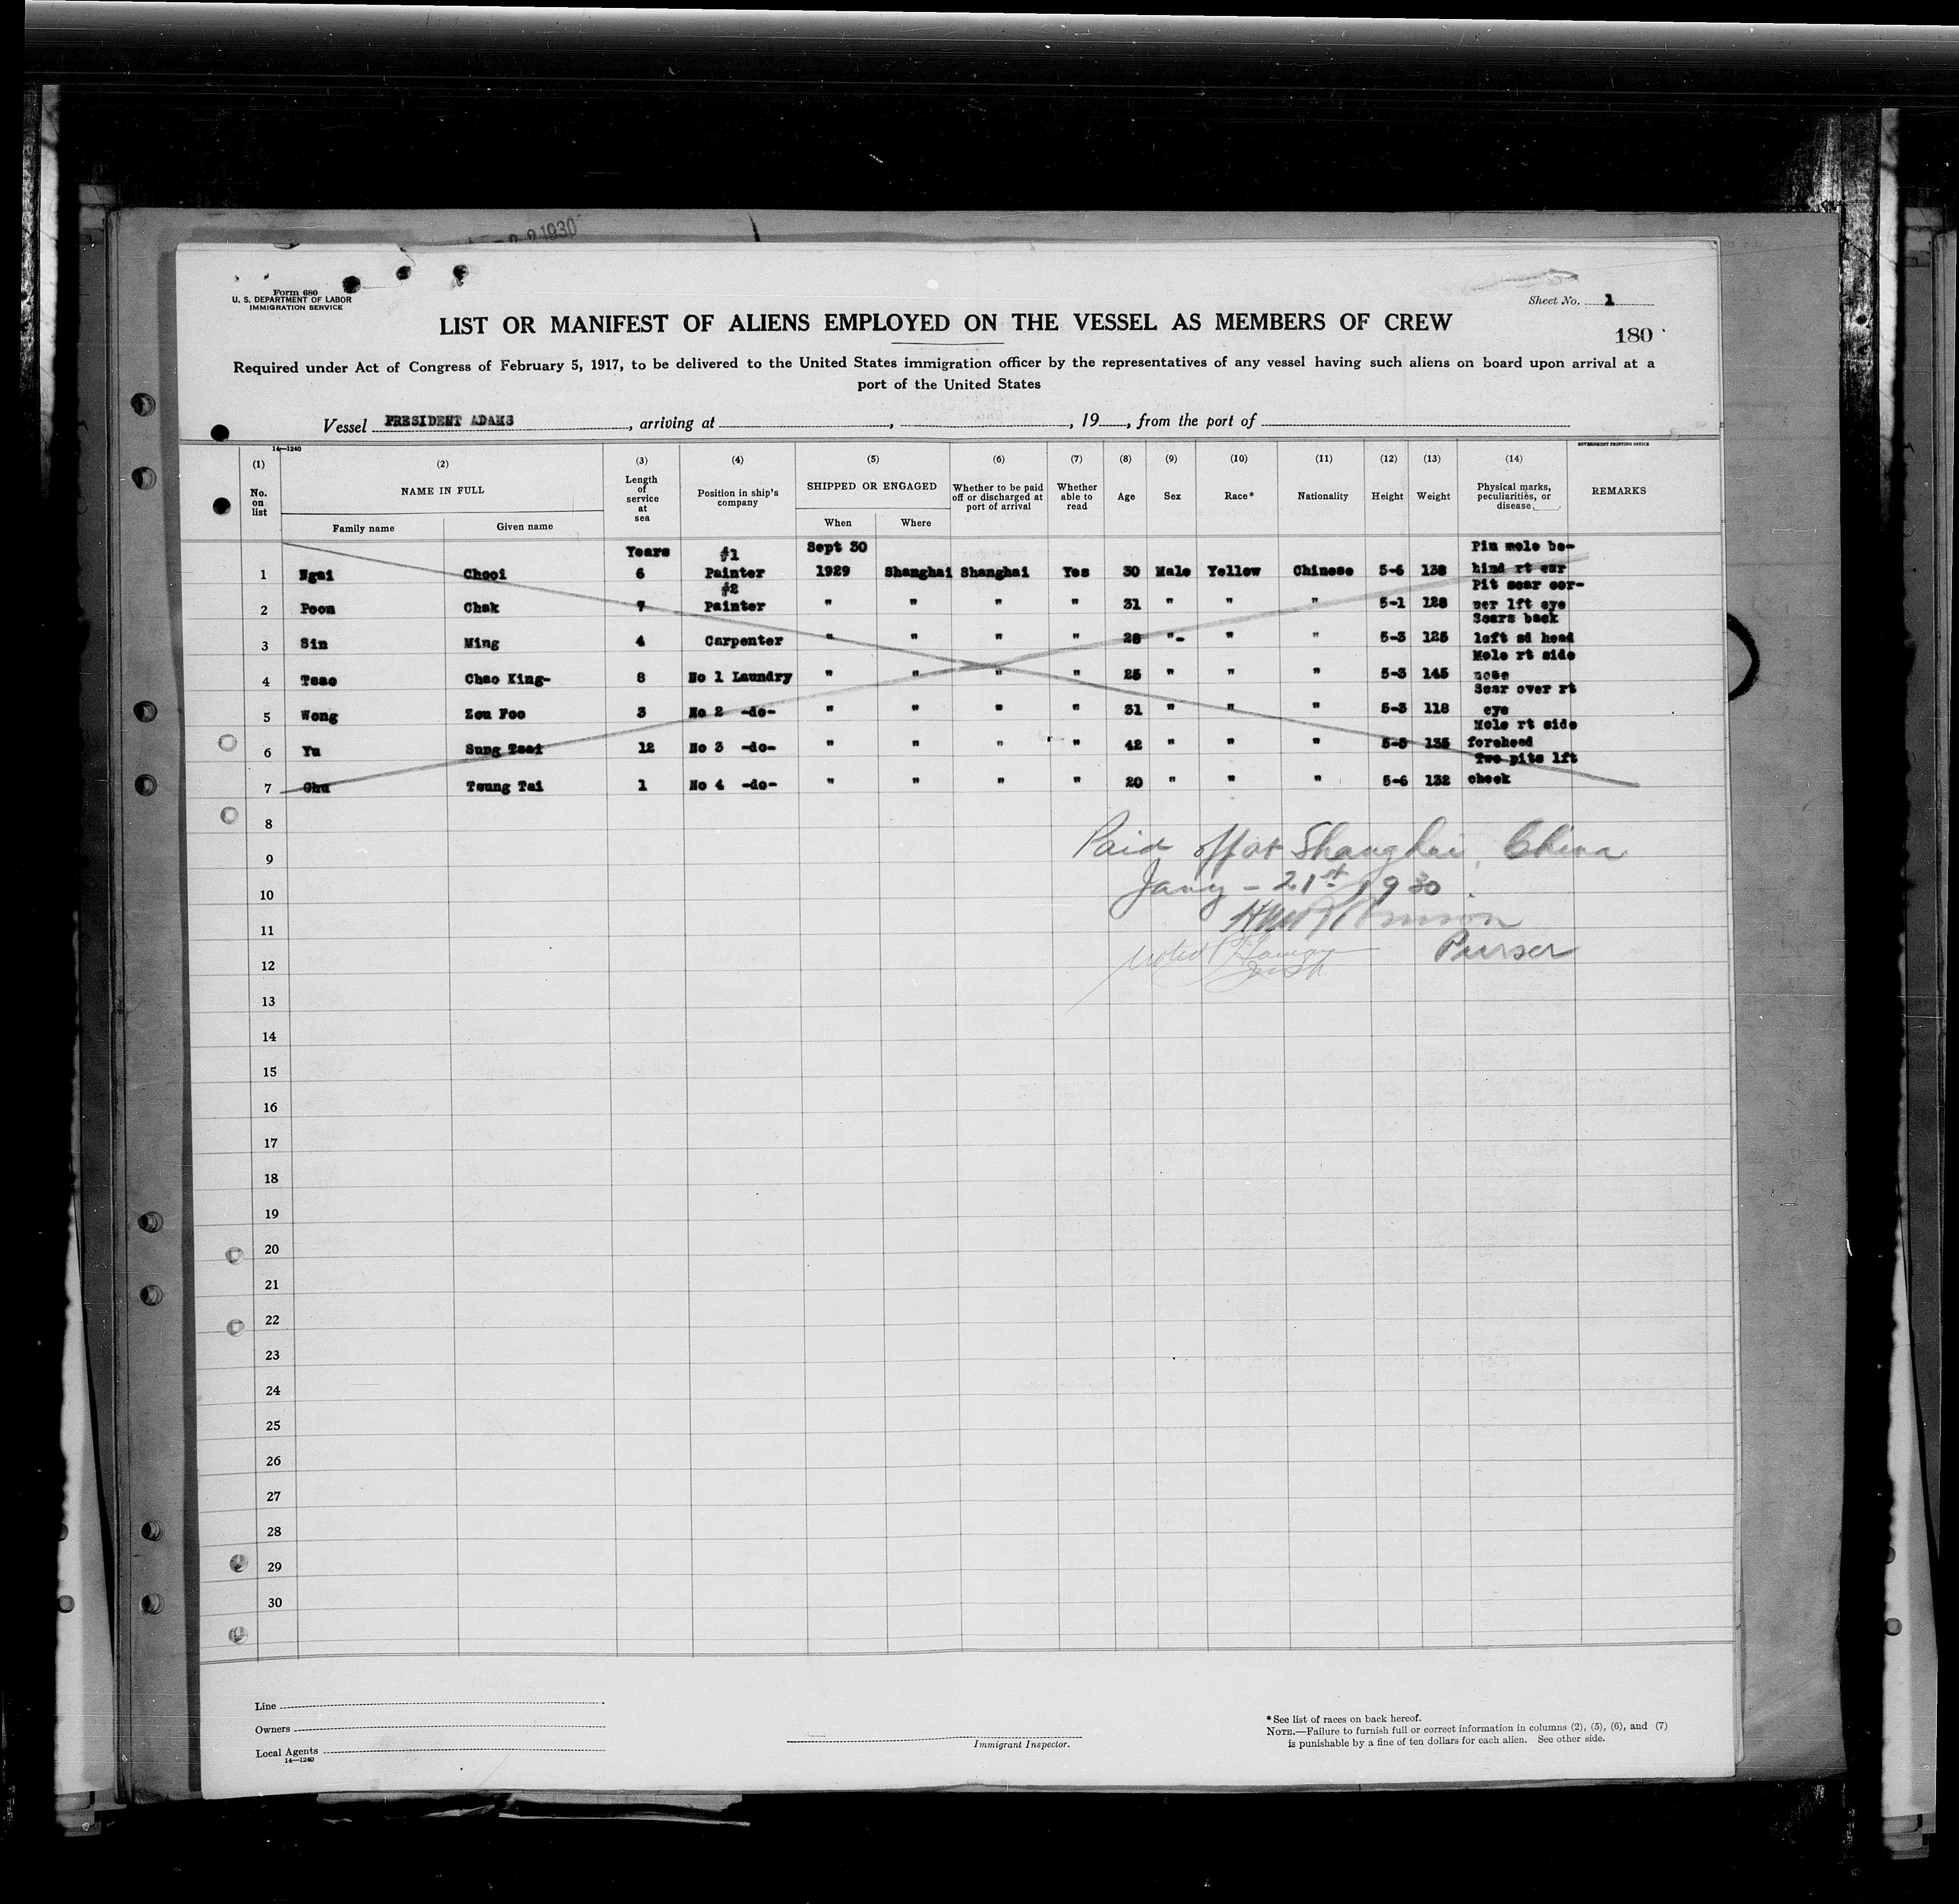 1930
Form 680
U. S. DEPARTMENT OF LABOR
IMMIGRATION SERVICE
Sheet No. 1
LIST OR MANIFEST OF ALIENS EMPLOYED ON THE VESSEL AS MEMBERS OF CREW
180
Required under Act of Congress of February 5, 1917, to be delivered to the United States immigration officer by the representatives of any vessel having such aliens on board upon arrival at a
port of the United States
Vessel PRESIDENT ADAMS, arriving at , , 19 , from the port of
14—1240 GOVERNMENT PRINTING OFFICE
(1) (2) (3) (4) (5) (6) (7) (8) (9) (10) (11) (12) (13) (14)
No. on list NAME IN FULL Length of service at sea Position in ship's company SHIPPED OR ENGAGED Whether to be paid off or discharged at port of arrival Whether able to read Age Sex Race* Nationality Height Weight Physical marks, peculiarities, or disease REMARKS
Family name Given name When Where
Years #1 Sept 30 Pin mole be-
1 Ngai Chooi 6 Painter 1929 Shanghai Shanghai Yes 30 Male Yellow Chinese 5-6 138 hind rt ear
#2 Pit scar cor-
2 Poon Chak 7 Painter " " " " 31 " " " 5-1 128 ner lft eye
Scars back
3 Sin Ming 4 Carpenter " " " " 28 "- " " 5-3 125 left sd head
Mole rt side
4 Tsao Chao King- 8 No 1 Laundry " " " " 25 " " " 5-3 145 nose
Scar over rt
5 Wong Zou Foo 3 No 2 -do- " " " " 31 " " " 5-3 118 eye
Mole rt side
6 Yu Sung Tsai 12 No 3 -do- " " " " 42 " " " 5-5 135 forehead
Two pits lft
7 Chu Tsung Tai 1 No 4 -do- " " " " 20 " " " 5-6 132 cheek
8
Paid off at Shanghai, China
9
Jany - 21st 1930.
10
11
Purser
12
13
14
15
16
17
18
19
20
21
22
23
24
25
26
27
28
29
30
Line
Owners
Local Agents
14—1240
Immigrant Inspector.
* See list of races on back hereof.
NOTE.—Failure to furnish full or correct information in columns (2), (5), (6), and (7)
is punishable by a fine of ten dollars for each alien. See other side.